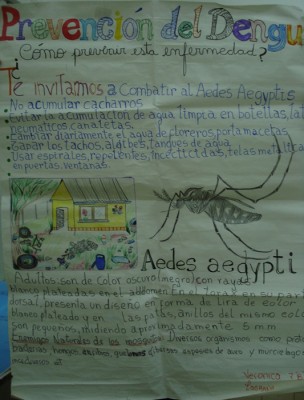 Prevención del Dengu
¿Cómo prevenir esta enfermedad?
Te invitamos a Combatir al Aedes Aegyptis
No acumular cacharros
Evitar la acumulación de agua limpia en botellas, la
neumáticos, canaletas.
Cambiar diariamente el agua de floreros, porta macetas
los tachos, aljibes, tanques de agua
Usar espirales, repelentes, insecticidas, telas metálica
en puertas, ventanas.
Aedes aegypti
Adultos son de color oscuro (negro) con rayas
blanco plateadas en el abdomen En el Torax en su par
dorsal, presenta un diseño en forma de lira de color
blanco plateado y en las patas, anillos del mismo color
son pequeños, midiendo aproximadamente 5 mm
Enemigos Naturales de los mosquitos Diversos organismos como
bacterias, hongos, esporas de aves y murciélagos
Veronica